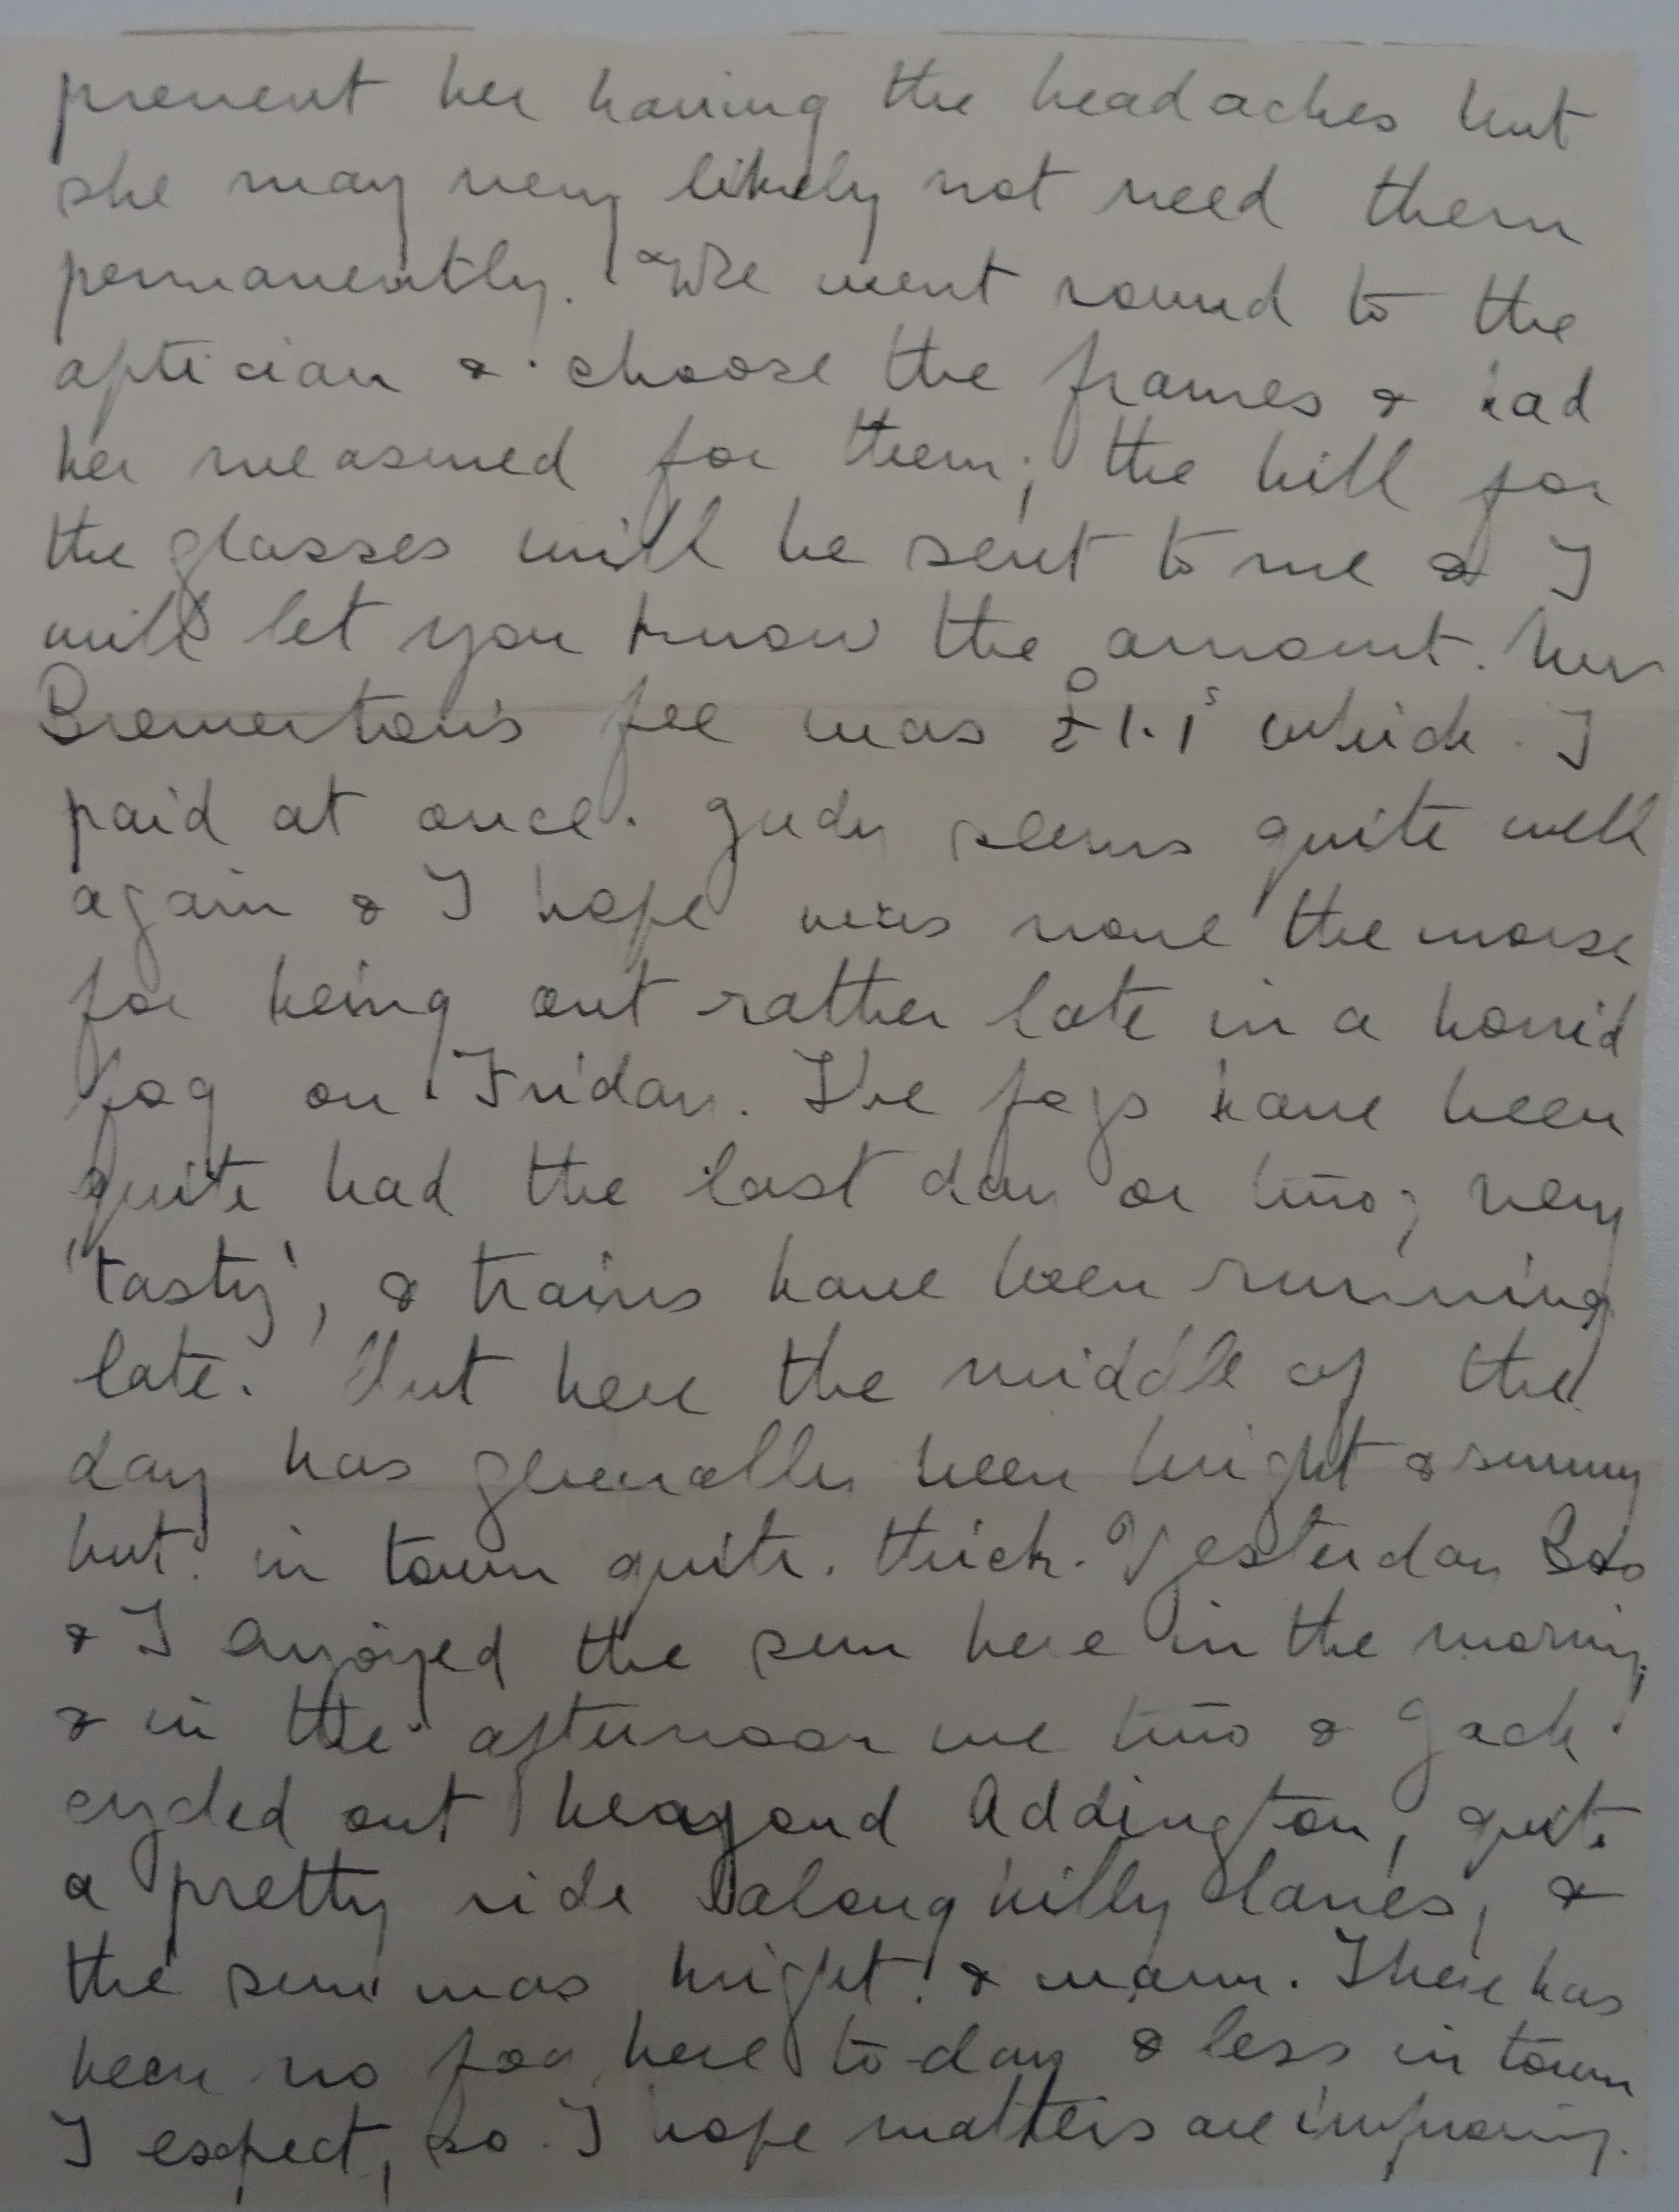 prevent her having the headaches but
she may very likely not need them
permanently. We went round to the
optician & choose the frames & had
her measured for them; the bill for
the glasses will be sent to me & I
will let you know the amount.
Bremerton's fee was £1.1s which I
paid at once. Judy seems quite well
again & I hope was none the worse
for being out rather late in a horrid
fog on Friday. The fogs have been
quite bad the last day or two; very
'tasty', & trains have been running
late. But here the middle of the
day has generally been bright & sunny
but in town quite thick. Yesterday
& I enjoyed the sun here in the morning
& in the afternoon we two & Jack
cycled out beayond Addington, quite
a pretty ride along hilly lanes, &
the sun was bright & warm. There has
been no fog here to-day & less in town
I expect, so I hope matters are improving.